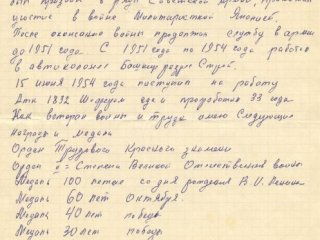 был призван в ряды Советской Армии, принимал
участие в войне Милитаристской Японией.
После окончания войны продолжал службу в армии
до 1951 года. С 1951 году по 1954 год работал
в автоколонне
15 июня 1954 года поступил на работу
Атк 1832 где и проработал 33 года
Как ветеран войны и труда имею следующие
награды и медали
Орден Трудового Красного знамени
Орден II = Степени Великой Отечественной войны
Медаль 100 летие со дня рождения В.И. Ленина
Медаль 60 лет Октября.
Медаль 40 лет победы
Медаль 30 лет победы